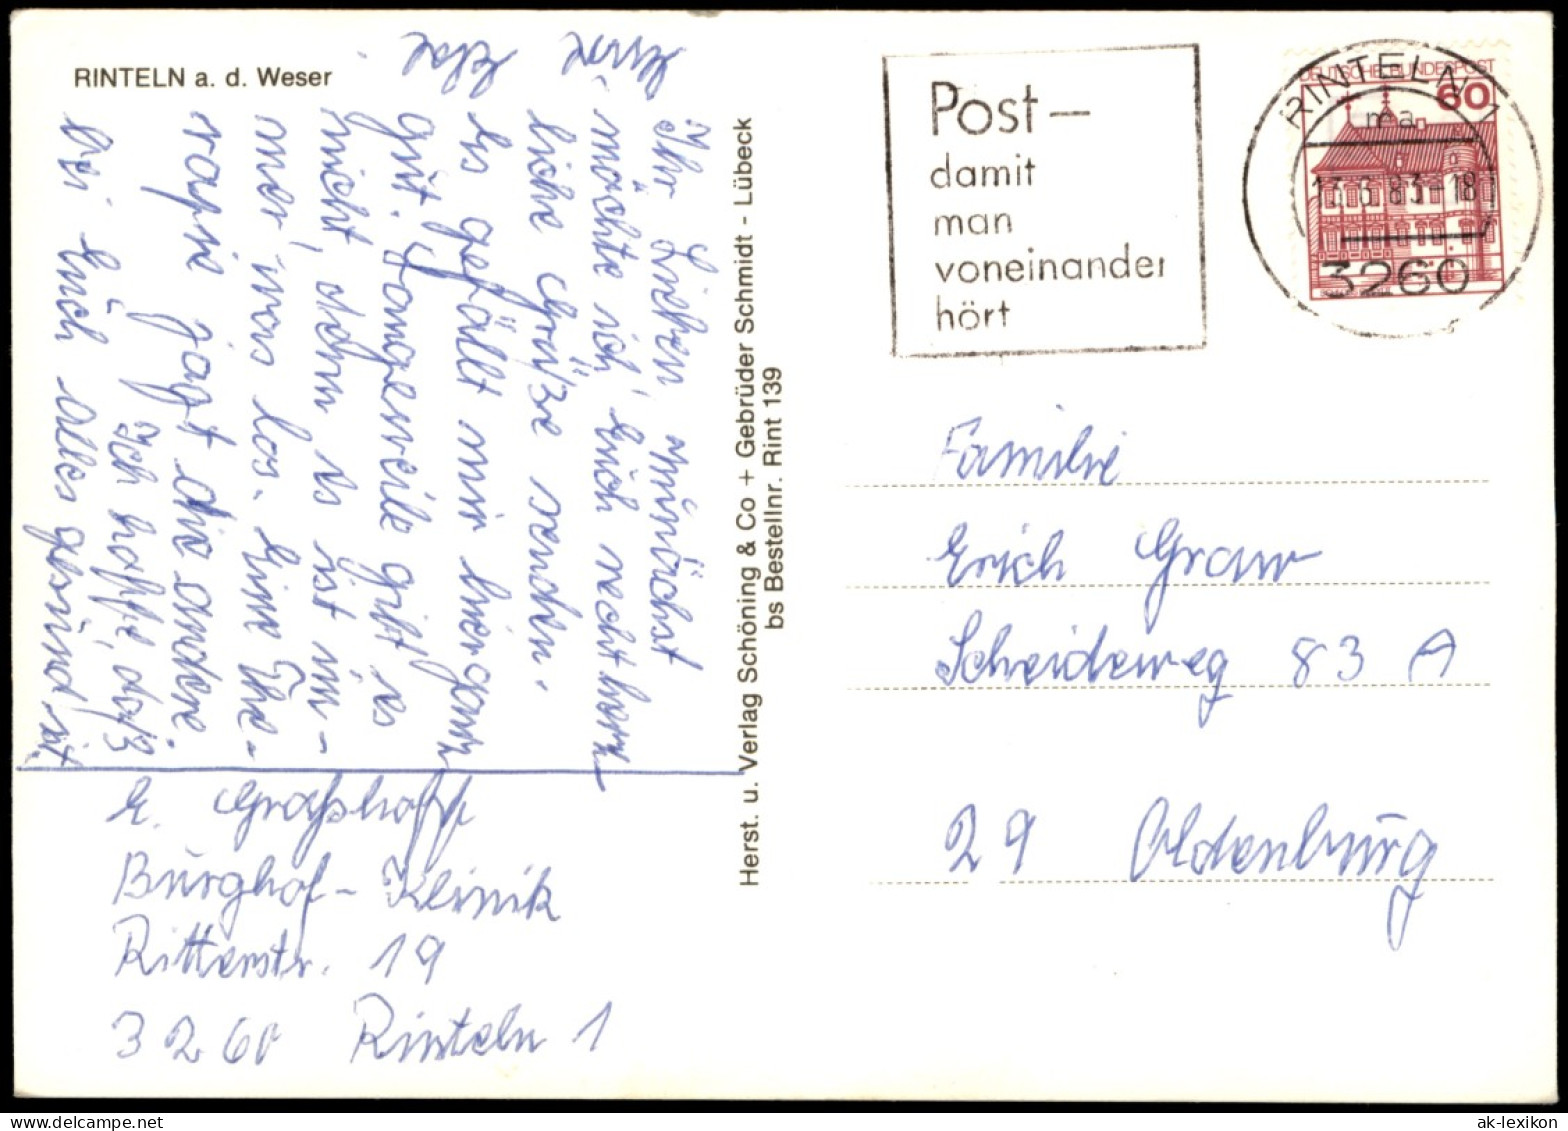 RINTELN a. d. Weser
Ihr Lieben, zunächst
möchte ich Euch recht herz-
liche Grüße senden.
Es gefällt mir hier ganz
gut. Langeweile gibt es
nicht, denn es ist im-
mer was los. Eine The-
rapie jagt die andere.
Ich hoffe, daß
bei Euch alles gesund ist.
Eure
Else
E. Graßhoff
Burghof-Klinik
Ritterstr. 19
3260 Rinteln 1
Herst. u. Verlag Schöning & Co + Gebrüder Schmidt - Lübeck
bs Bestellnr. Rint 139
Post –
damit
man
voneinander
hört
DEUTSCHE BUNDESPOST
60
RINTELN 1
ma
13.6.83-18
3260
Familie
Erich Graw
Scheideweg 83 A
29 Oldenburg
ak-lexikon